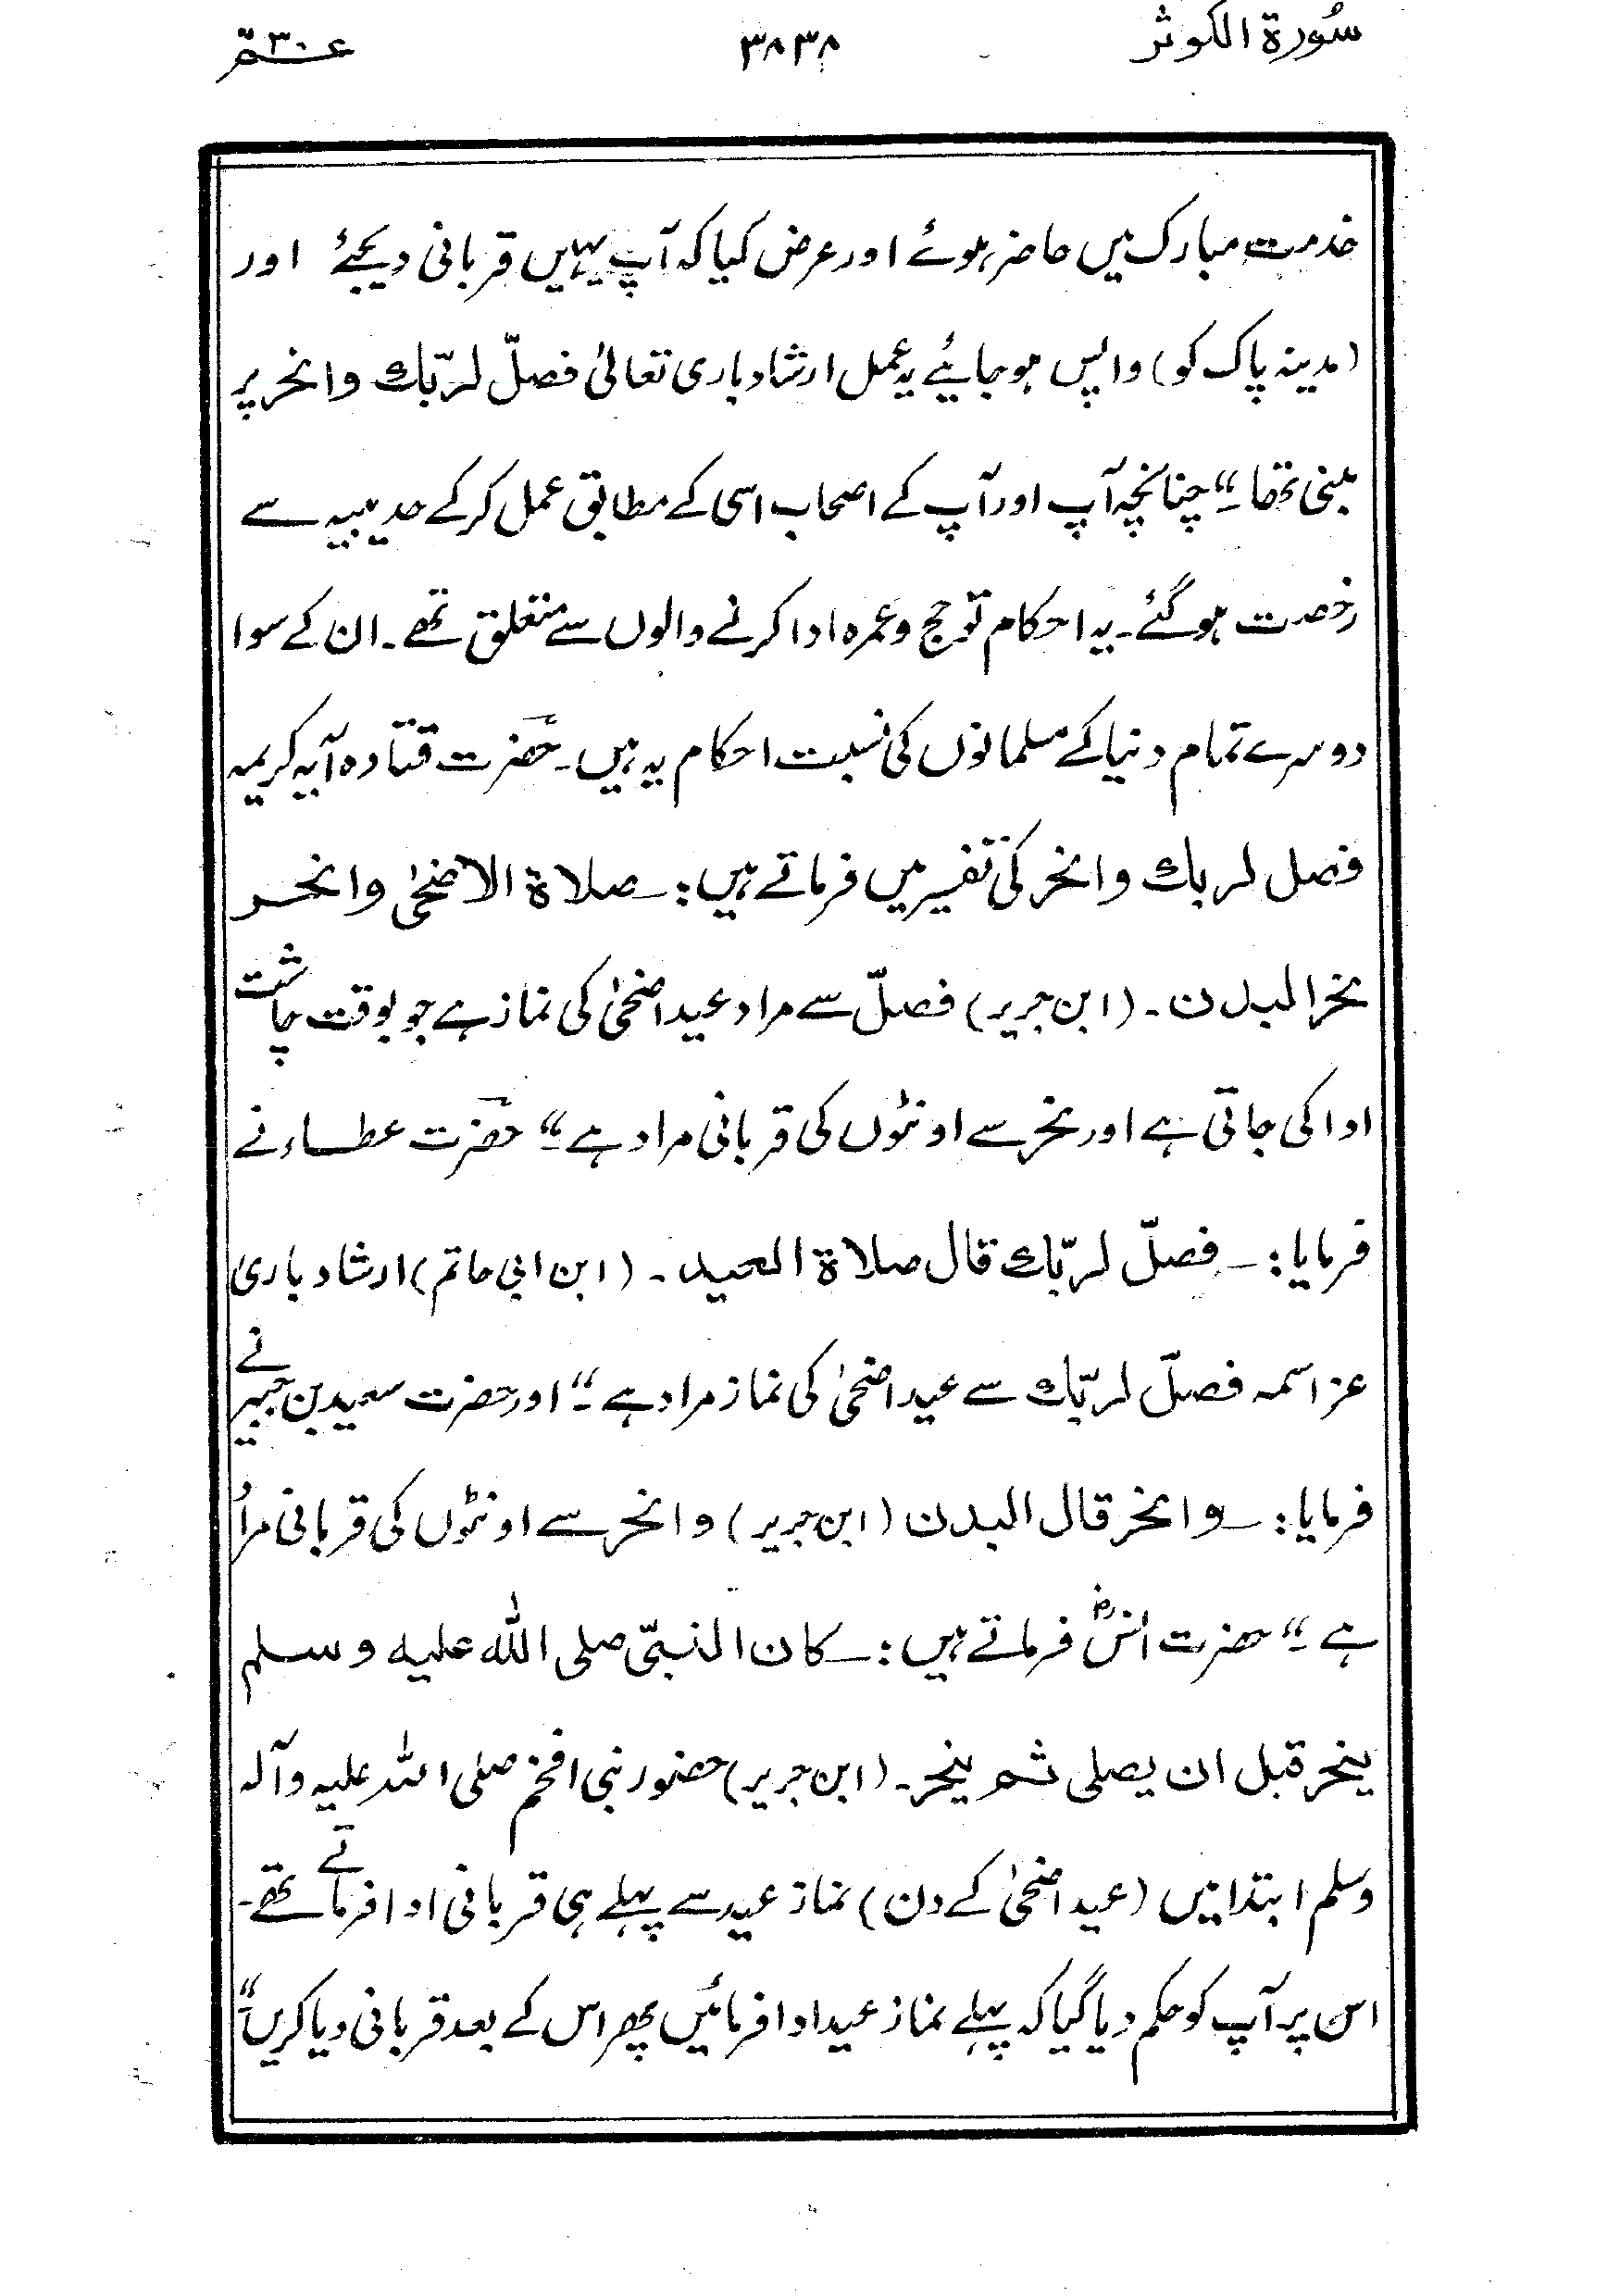 سُورة الکوثر
۳۸۳۸
عم ۳۰
خدمت مبارک میں حاضر ہوئے اور عرض کیا کہ آپ یہیں قربانی دیجئے اور
(مدینہ پاک کو) واپس ہو جائیے یہ عمل ارشاد باری تعالیٰ فصلّ لربّك وانحر پر
مبنی تھا۔" چنانچہ آپ اور آپ کے اصحاب اسی کے مطابق عمل کر کے حدیبیہ سے
رخصت ہو گئے۔ یہ احکام تو حج و عمرہ ادا کرنے والوں سے متعلق تھے۔ ان کے سوا
دوسرے تمام دنیا کے مسلمانوں کی نسبت احکام یہ ہیں۔ حضرت قتادہ آیہ کریمہ
فصل لربك وانحر کی تفسیر میں فرماتے ہیں:۔ صلاة الاضحیٰ وانحر
نحر البدن۔ (ابن جریر) فصلّ سے مراد عید اضحیٰ کی نماز ہے جو بوقت چاشت
ادا کی جاتی ہے اور نحر سے اونٹوں کی قربانی مراد ہے۔" حضرت عطاء نے
فرمایا:۔ فصلّ لربّك قال صلاة العید۔ (ابن ابی حاتم) ارشاد باری
عز اسمہ فصلّ لربّك سے عید اضحیٰ کی نماز مراد ہے۔" اور حضرت سعید بن جبیر نے
فرمایا:۔ وانحر قال البدن (ابن جریر) وانحر سے اونٹوں کی قربانی مراد
ہے۔" حضرت انسؓ فرماتے ہیں:۔ کان النبیّ صلی اللہ علیه وسلم
ینحر قبل ان یصلی ثم ینحر۔ (ابن جریر) حضور نبی افخم صلی اللہ علیہ وآلہ
وسلم ابتدا میں (عید اضحیٰ کے دن) نماز عید سے پہلے ہی قربانی ادا فرماتے تھے۔
اس پر آپ کو حکم دیا گیا کہ پہلے نماز عید ادا فرمائیں پھر اس کے بعد قربانی دیا کریں۔"